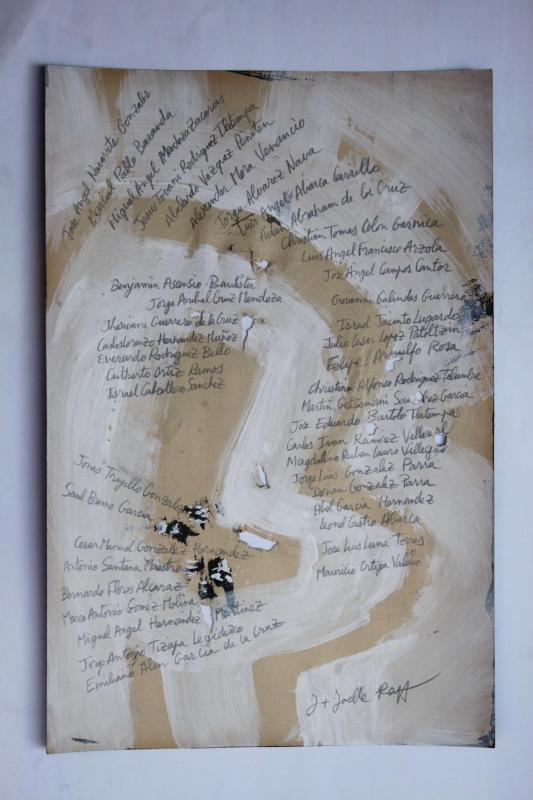 Jose Angel Navarrete Gonzalez
Marcial Pablo Baranda
Miguel Angel Mendoza Zacarias
Jesus Jovani Rodriguez Tlatempa
Abelardo Vazquez Peniten
Alexander Mora Venancio
Jorge Alvarez Nava
Luis Angel Abarca Carrillo
Adan Abraham de la Cruz
Christian Tomas Colon Garnica
Luis Angel Francisco Arzola
Jose Angel Campos Cantor
Benjamin Ascencio Bautista
Jorge Anibal Cruz Mendoza
Jhosivani Guerrero de la Cruz
Carlos Lorenzo Hernandez Muñoz
Everardo Rodriguez Bello
Cutberto Ortiz Ramos
Israel Caballero Sanchez
Giovanni Galindes Guerrero
Israel Jacinto Lugardo
Julio Cesar Lopez Patoltzin
Felipe Arnulfo Rosa
Christian Alfonso Rodriguez Telumbre
Martin Getsemani Sanchez Garcia
Jose Eduardo Bartolo Tlatempa
Carlos Ivan Ramirez Villareal
Magdaleno Ruben Lauro Villegas
Jorge Luis Gonzalez Parra
Doriam Gonzalez Parra
Abel Garcia Hernandez
Leonel Castro Abarca
Jose Luis Luna Torres
Mauricio Ortega Valerio
Jonas Trujillo Gonzalez
Saul Bruno Garcia
Cesar Manuel Gonzalez Hernandez
Antonio Santana Maestro
Bernardo Flores Alcaraz
Marco Antonio Gomez Molina
Miguel Angel Hernandez Martinez
Jorge Antonio Tizapa Legideño
Emiliano Alen Garcia de la Cruz
J + Joelle Rapp